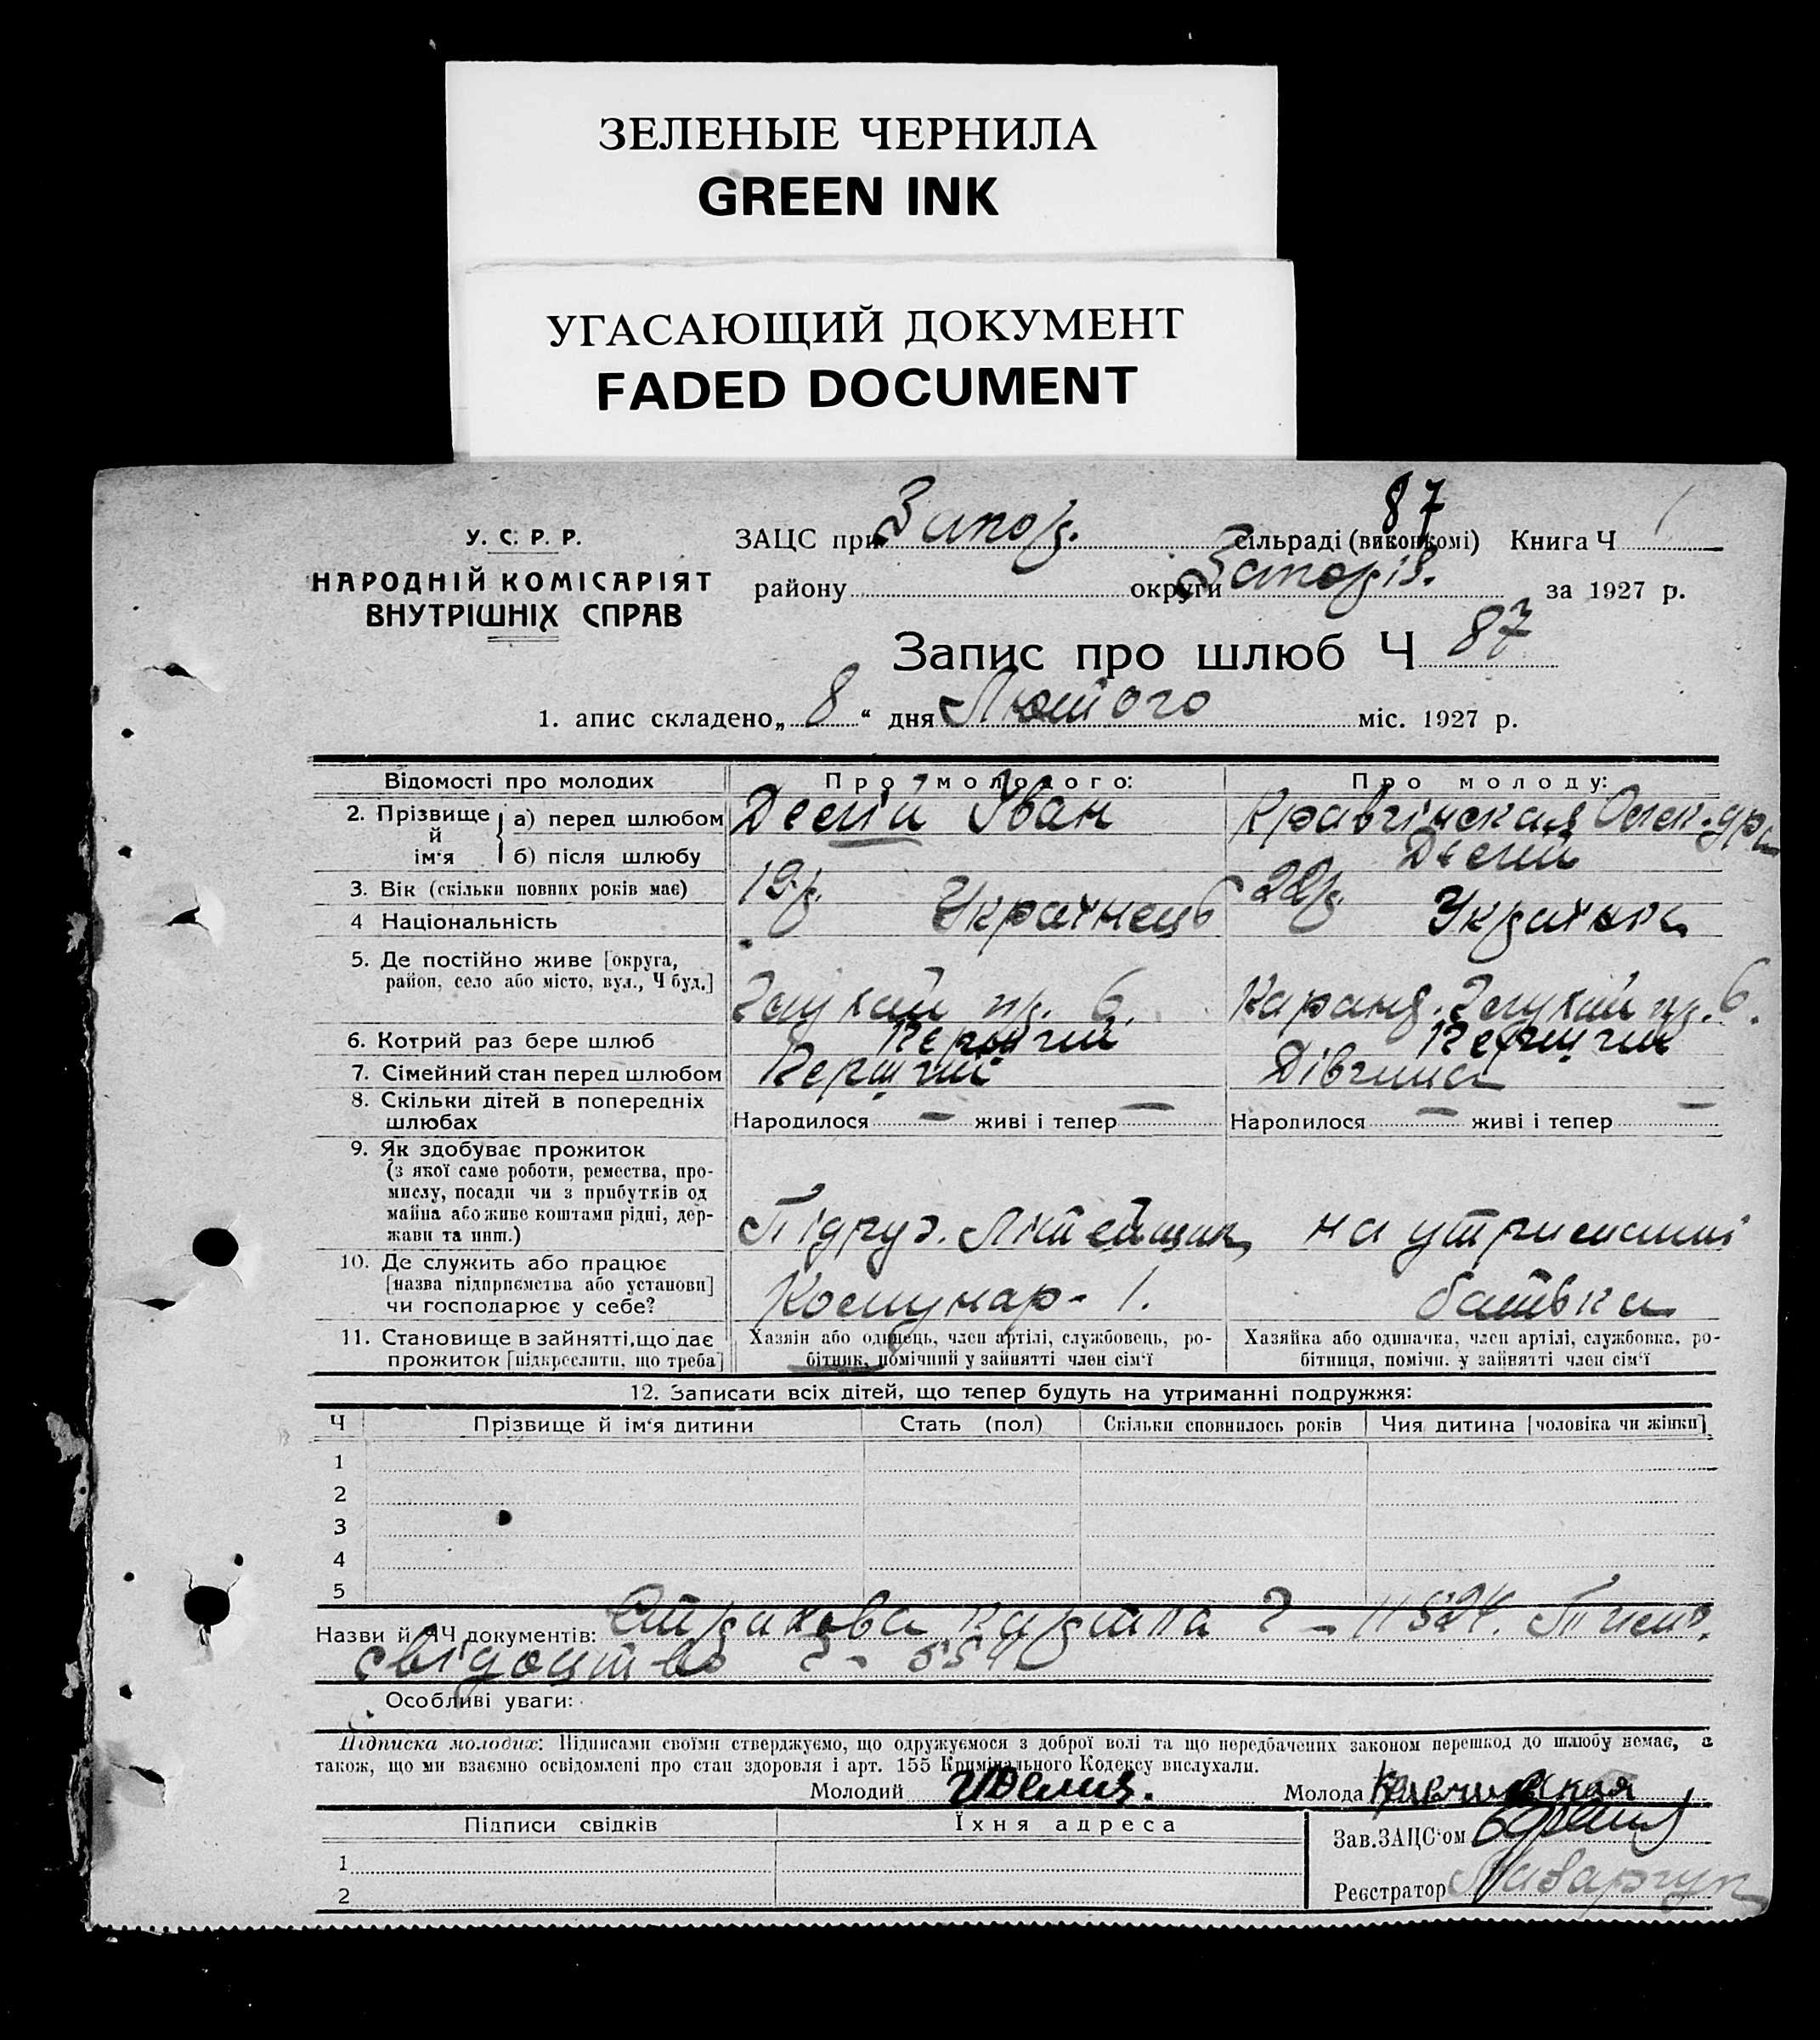 ЗЕЛЕНЫЕ ЧЕРНИЛА
GREEN INK
УГАСАЮЩИЙ ДОКУМЕНТ
FADED DOCUMENT
87
У. С. Р. Р.
НАРОДНІЙ КОМІСАРІЯТ
ВНУТРІШНІХ СПРАВ
ЗАЦС при Запор. сільраді (виконкомі) Книга Ч 1
району округи Запоріз. за 1927 р.
Запис про шлюб Ч 87
1. апис складено „ 8 “ дня Лютого міс. 1927 р.
Відомості про молодих Про молодого: Про молоду:
2. Прізвище й ім‘я а) перед шлюбом Іван Кравчінская
б) після шлюбу
3. Вік (скільки повних років має) 19 р. 22 р.
4 Національність Українець Українка
5. Де постійно живе [округа, район, село або місто, вул., Ч буд.] 6. 6.
6. Котрий раз бере шлюб Перший Перший
7. Сімейний стан перед шлюбом Перший Дівчина
8. Скільки дітей в попередніх шлюбах Народилося — живі і тепер — Народилося — живі і тепер —
9. Як здобуває прожиток
(з якої саме роботи, ремества, про-
мислу, посади чи з прибутків од
майна або живе коштами рідні, дер-
жави та инш.) на утриманні
10. Де служить або працює
[назва підприємства або установи]
чи господарює у себе? Комунар - 1. батька
11. Становище в зайнятті, що дає прожиток [підкреслити, що треба]
Хазяїн або одинець, член артілі, службовець, ро-
бітник, помічний у зайнятті член сім‘ї
Хазяйка або одиначка, член артілі, службовка, ро-
бітниця, помічн. у зайнятті член сім‘ї
12. Записати всіх дітей, що тепер будуть на утриманні подружжя:
Ч Прізвище й ім‘я дитини Стать (пол) Скільки сповнилось років Чия дитина [чоловіка чи жінки]
1
2
3
4
5
Назви й ЧЧ документів: Страхова картка
свідоцтво
Особливі уваги:
Підписка молодих: Підписами своїми стверджуємо, що одружуємося з доброї волі та що передбачених законом перешкод до шлюбу немає, а
також, що ми взаємно освідомлені про стан здоровля і арт. 155 Кримінального Кодексу вислухали.
Молодий Молода
Підписи свідків Їхня адреса
Зав.ЗАЦС‘ом
1
Реєстратор
2